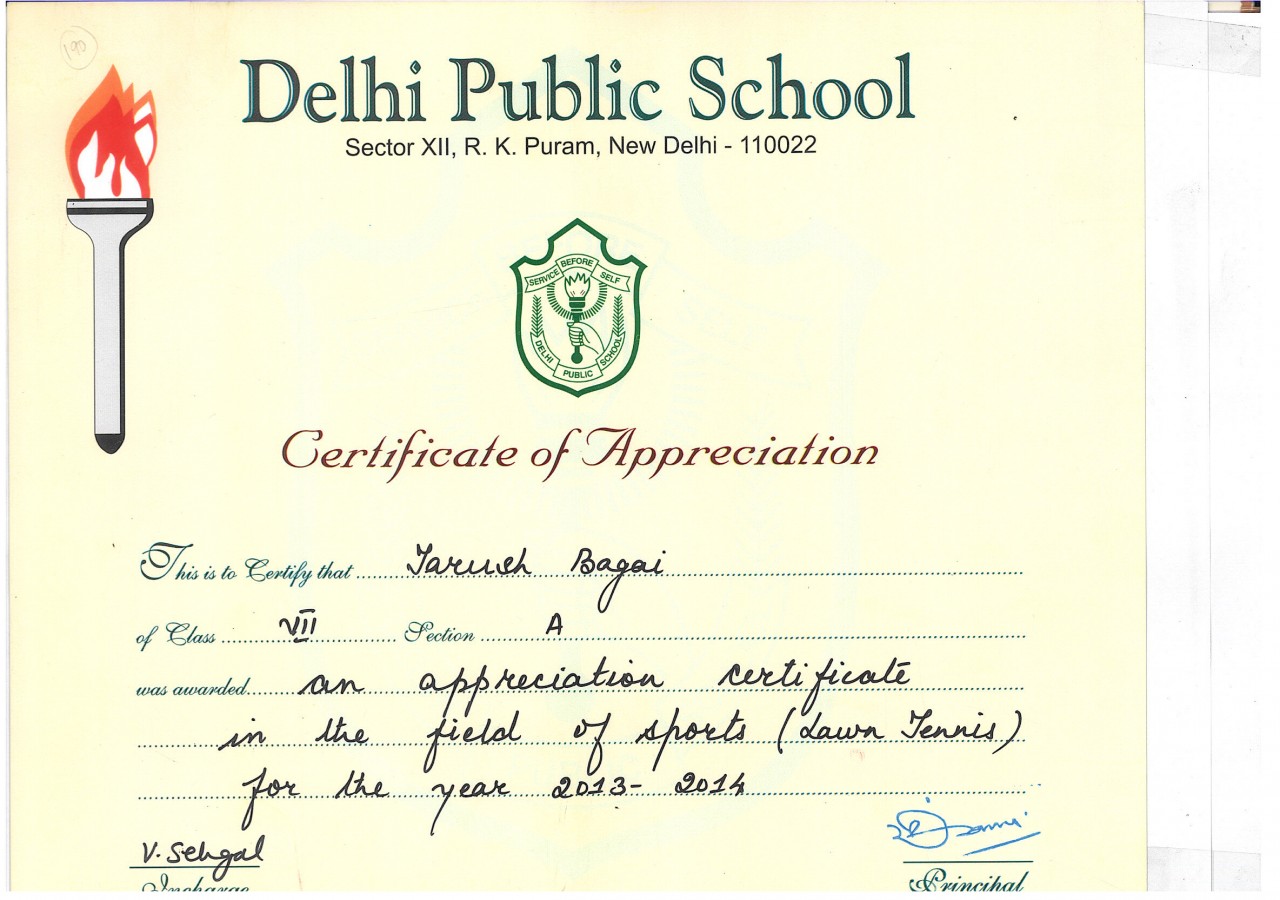 190
Delhi Public School
Sector XII, R. K. Puram, New Delhi - 110022
SERVICE BEFORE SELF
DELHI PUBLIC SCHOOL
Certificate of Appreciation
This is to Certify that Tarush Bagai
of Class VII Section A
was awarded an appreciation certificate
in the field of sports (Lawn Tennis)
for the year 2013- 2014
V. Sehgal
Incharge Principal